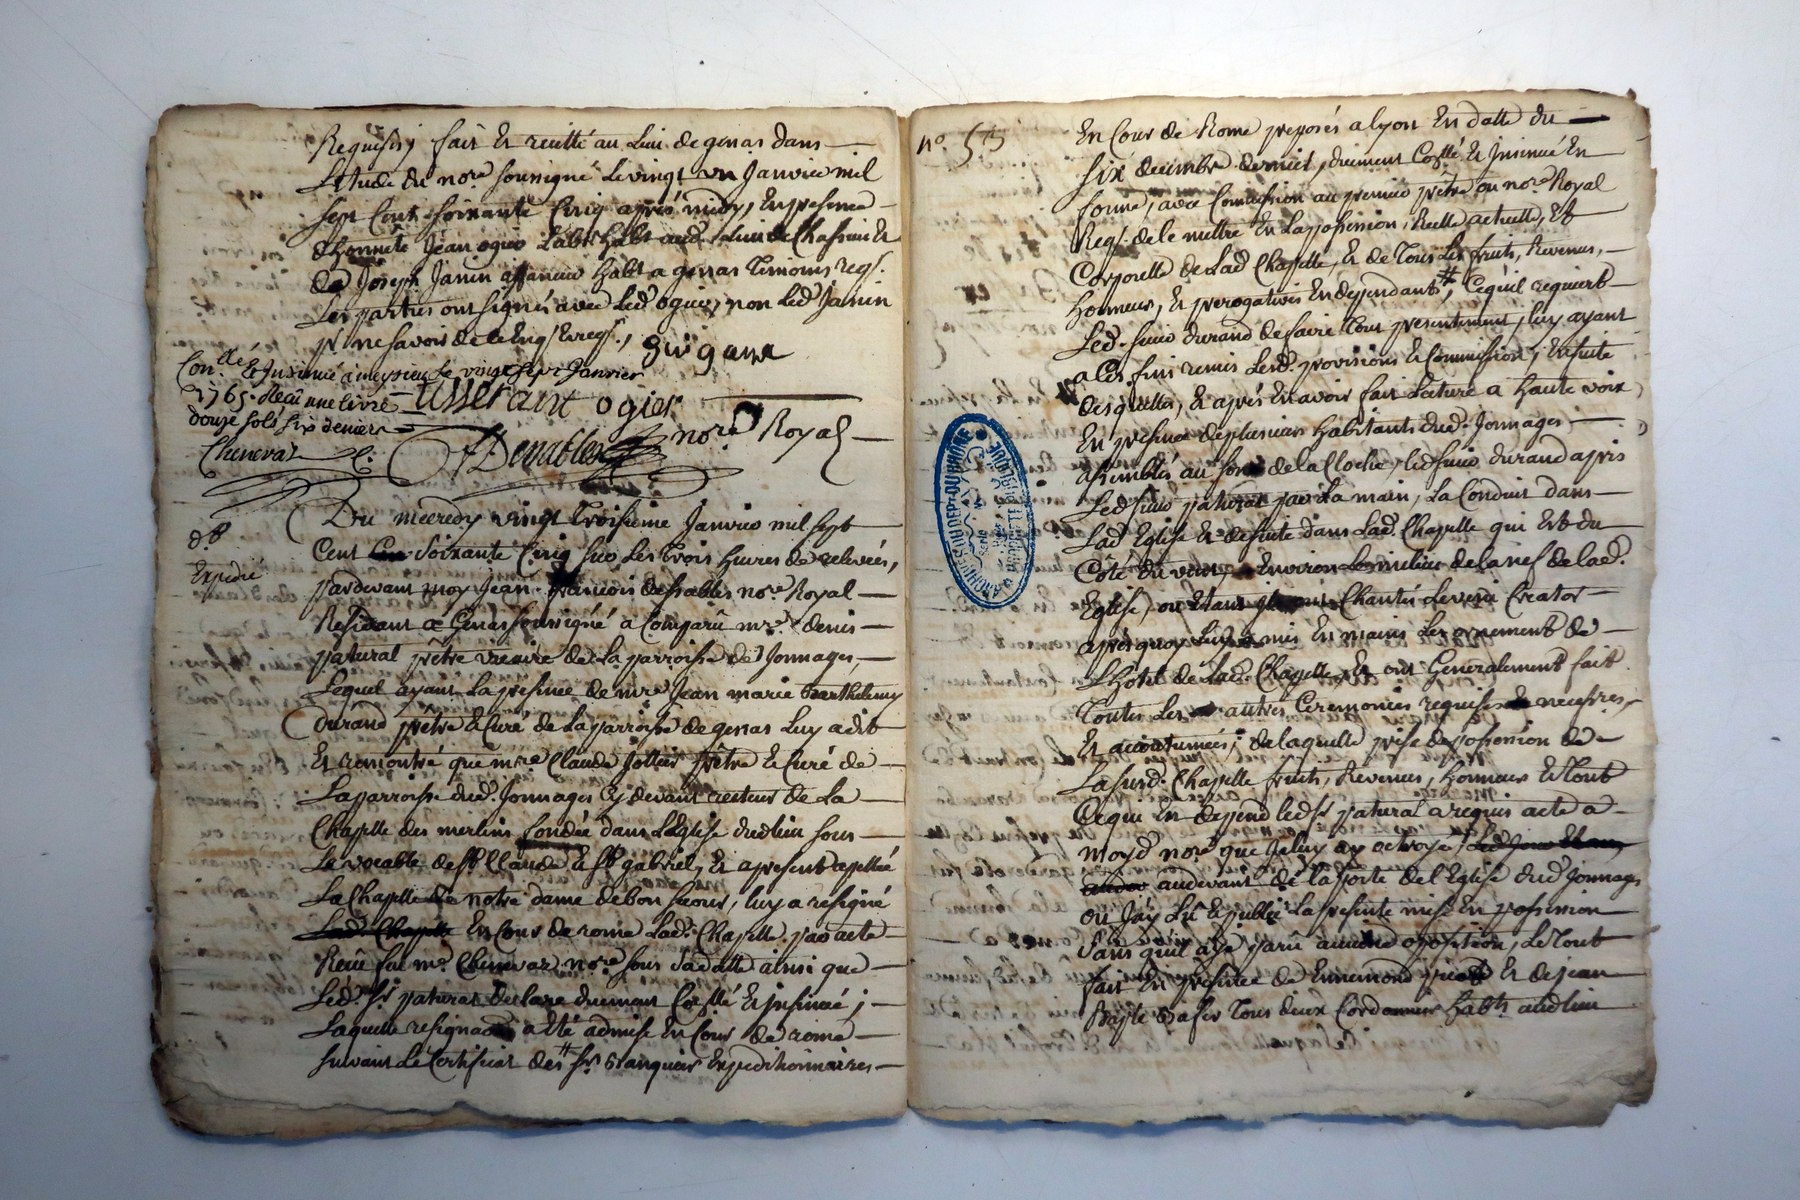 Requis, fait et recitté au lieu de genas dans
L'etude du nore soussigné le vingt un Janvier mil
sept Cent soixante Cinq après midy, En presence
d'honnête Jean ogier habt aud. lieu de Chassieu Et
de Joseph Janin affaneur habt a genas Temoins reqs.
Les parties ont signés avec Led ogier, non Led Janin
pr ne savoir de ce Enqs. Et reqs.,
guigana
Conllé & Insinué a meysieu Le vingt sept Janvier
1765. Reçû une livre
douze sols six deniers
Chenevaz
ogier
Desvables nore Royal
Du mecredy vingt Troisieme Janvier mil sept
do
Expedié
Cent soixante Cinq sur les trois heures de relevées,
pardevant moy Jean francois desvables nore Royal
Residant a Genas soussigné a Comparû mre denis
patural prêtre vicaire de La parroisse de Jonnages,
Lequel ayant La presence de mre Jean marie barthelemy
durand prêtre & Curé de La parroisse de genas Luy a dit
Et remontré que mre Claude Jottier prêtre & Curé de
La parroisse dud. Jonnages Cy devant recteur de La
Chapelle des merlins fondée dans L'Eglise dud lieu sous
Le vocable de st Claude & st gabriel, Et a present apellée
La Chapelle de notre dame de bon secour, luy a resigné
Led. Chapelle En Cour de rome Lad. Chapelle par acte
Reçu sur me. Chenevaz nore sous sa datte ainsi que
Led. sr patural declare duement Coñllé & insinué;
Laquelle resignaõn a Eté admise En Cour de rome
suivant Le Certificat des srs banquiers Expeditionnaires
no 53
En Cour de Rome preposés a lyon En datte du
six decembre dernier, duement Coñllé & Insinué En
forme, avec Commission au premier prêtre ou nore Royal
Reqs. de le mettre En La possession, Reelle actuelle, Et
Corporelle de Lad Chapelle, Et de Tous Les fruits, Revenus,
honneurs, Et prerogatives En dependants, Ce qu'il requiert
Led. sieur durand de faire Tout presentement, luy ayant
a Ces fins remis Lesd. provisions & Commission, Ensuite
desquelles, Et après En avoir fait Lecture a haute voix
En presence de plusieurs habitants dud. Jonnages
assemblés au son de la Cloche, led sieur durand a pris
Led sieur patural par La main, La Conduit dans
Lad Eglise Et de suite dans Lad. Chapelle qui Est du
Côté du vent, Environ Le milieu de la nef de lad.
Eglise, ou Etant Chanté Le veni Creator
après quoy Luy a mis En mains Les ornement de
L'hôtel de Lad. Chapelle, Et ont Generalement fait
Toutes Les autres Ceremonies requises necesres,
Et accoutumées; de laquelle prise de possession de
La susd. Chapelle fruits, Revenus, honneurs Et Tout
Ce qui En depend led sr patural a requis acte a
moyd nore que Je luy ay octroyé
audevant de La porte de l'Eglise dud Jonnages
ou J'ay Lû & publié La presente mise En possession
sans quil aye parû aucune oposition, Le Tout
fait En presence de Ennemond picot Et de jean
Bapte Tous deux Cordonnier habts audlieu
ARCHIVES DU DEPT DU RHONE
PROPRIETE PUBLIQUE